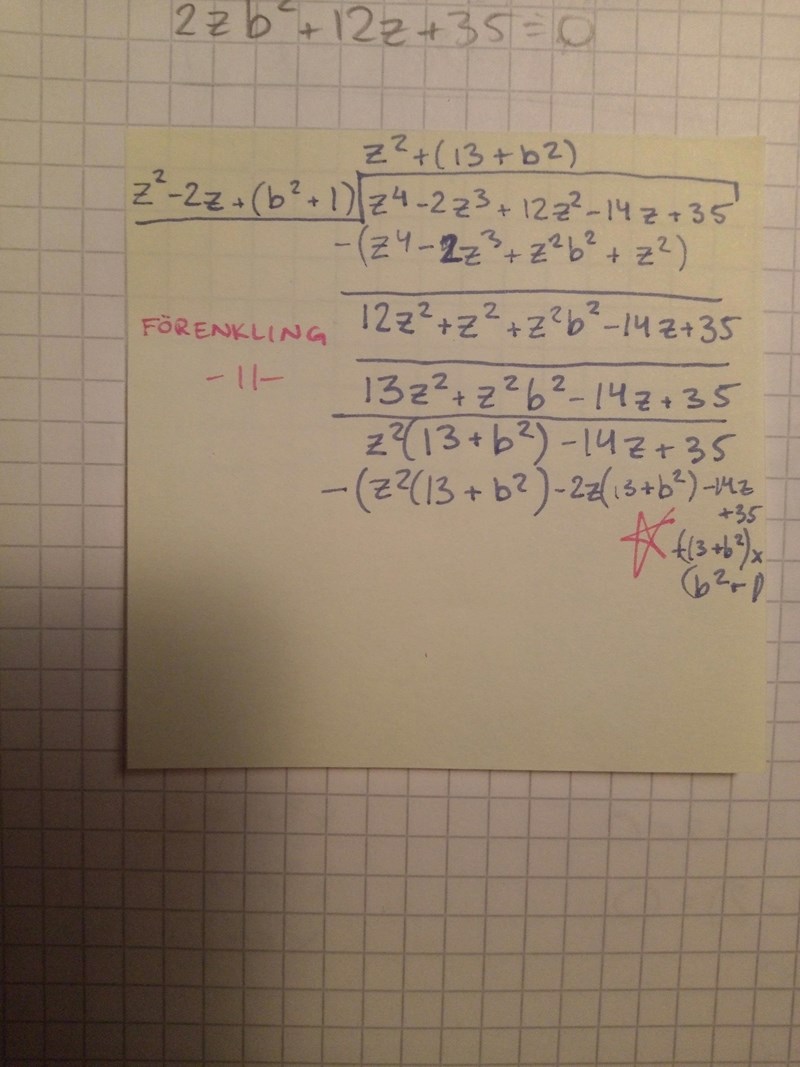 2zb²+12z+35=0
z²+(13+b²)
z²-2z+(b²+1) z⁴-2z³+12z²-14z+35
-(z⁴-2z³+z²b²+z²)
12z²+z²+z²b²-14z+35
FÖRENKLING
13z²+z²b²-14z+35
-11-
z²(13+b²)-14z+35
-(z²(13+b²)-2z(13+b²)-14z
+35
+(13+b²)x
(b²+1